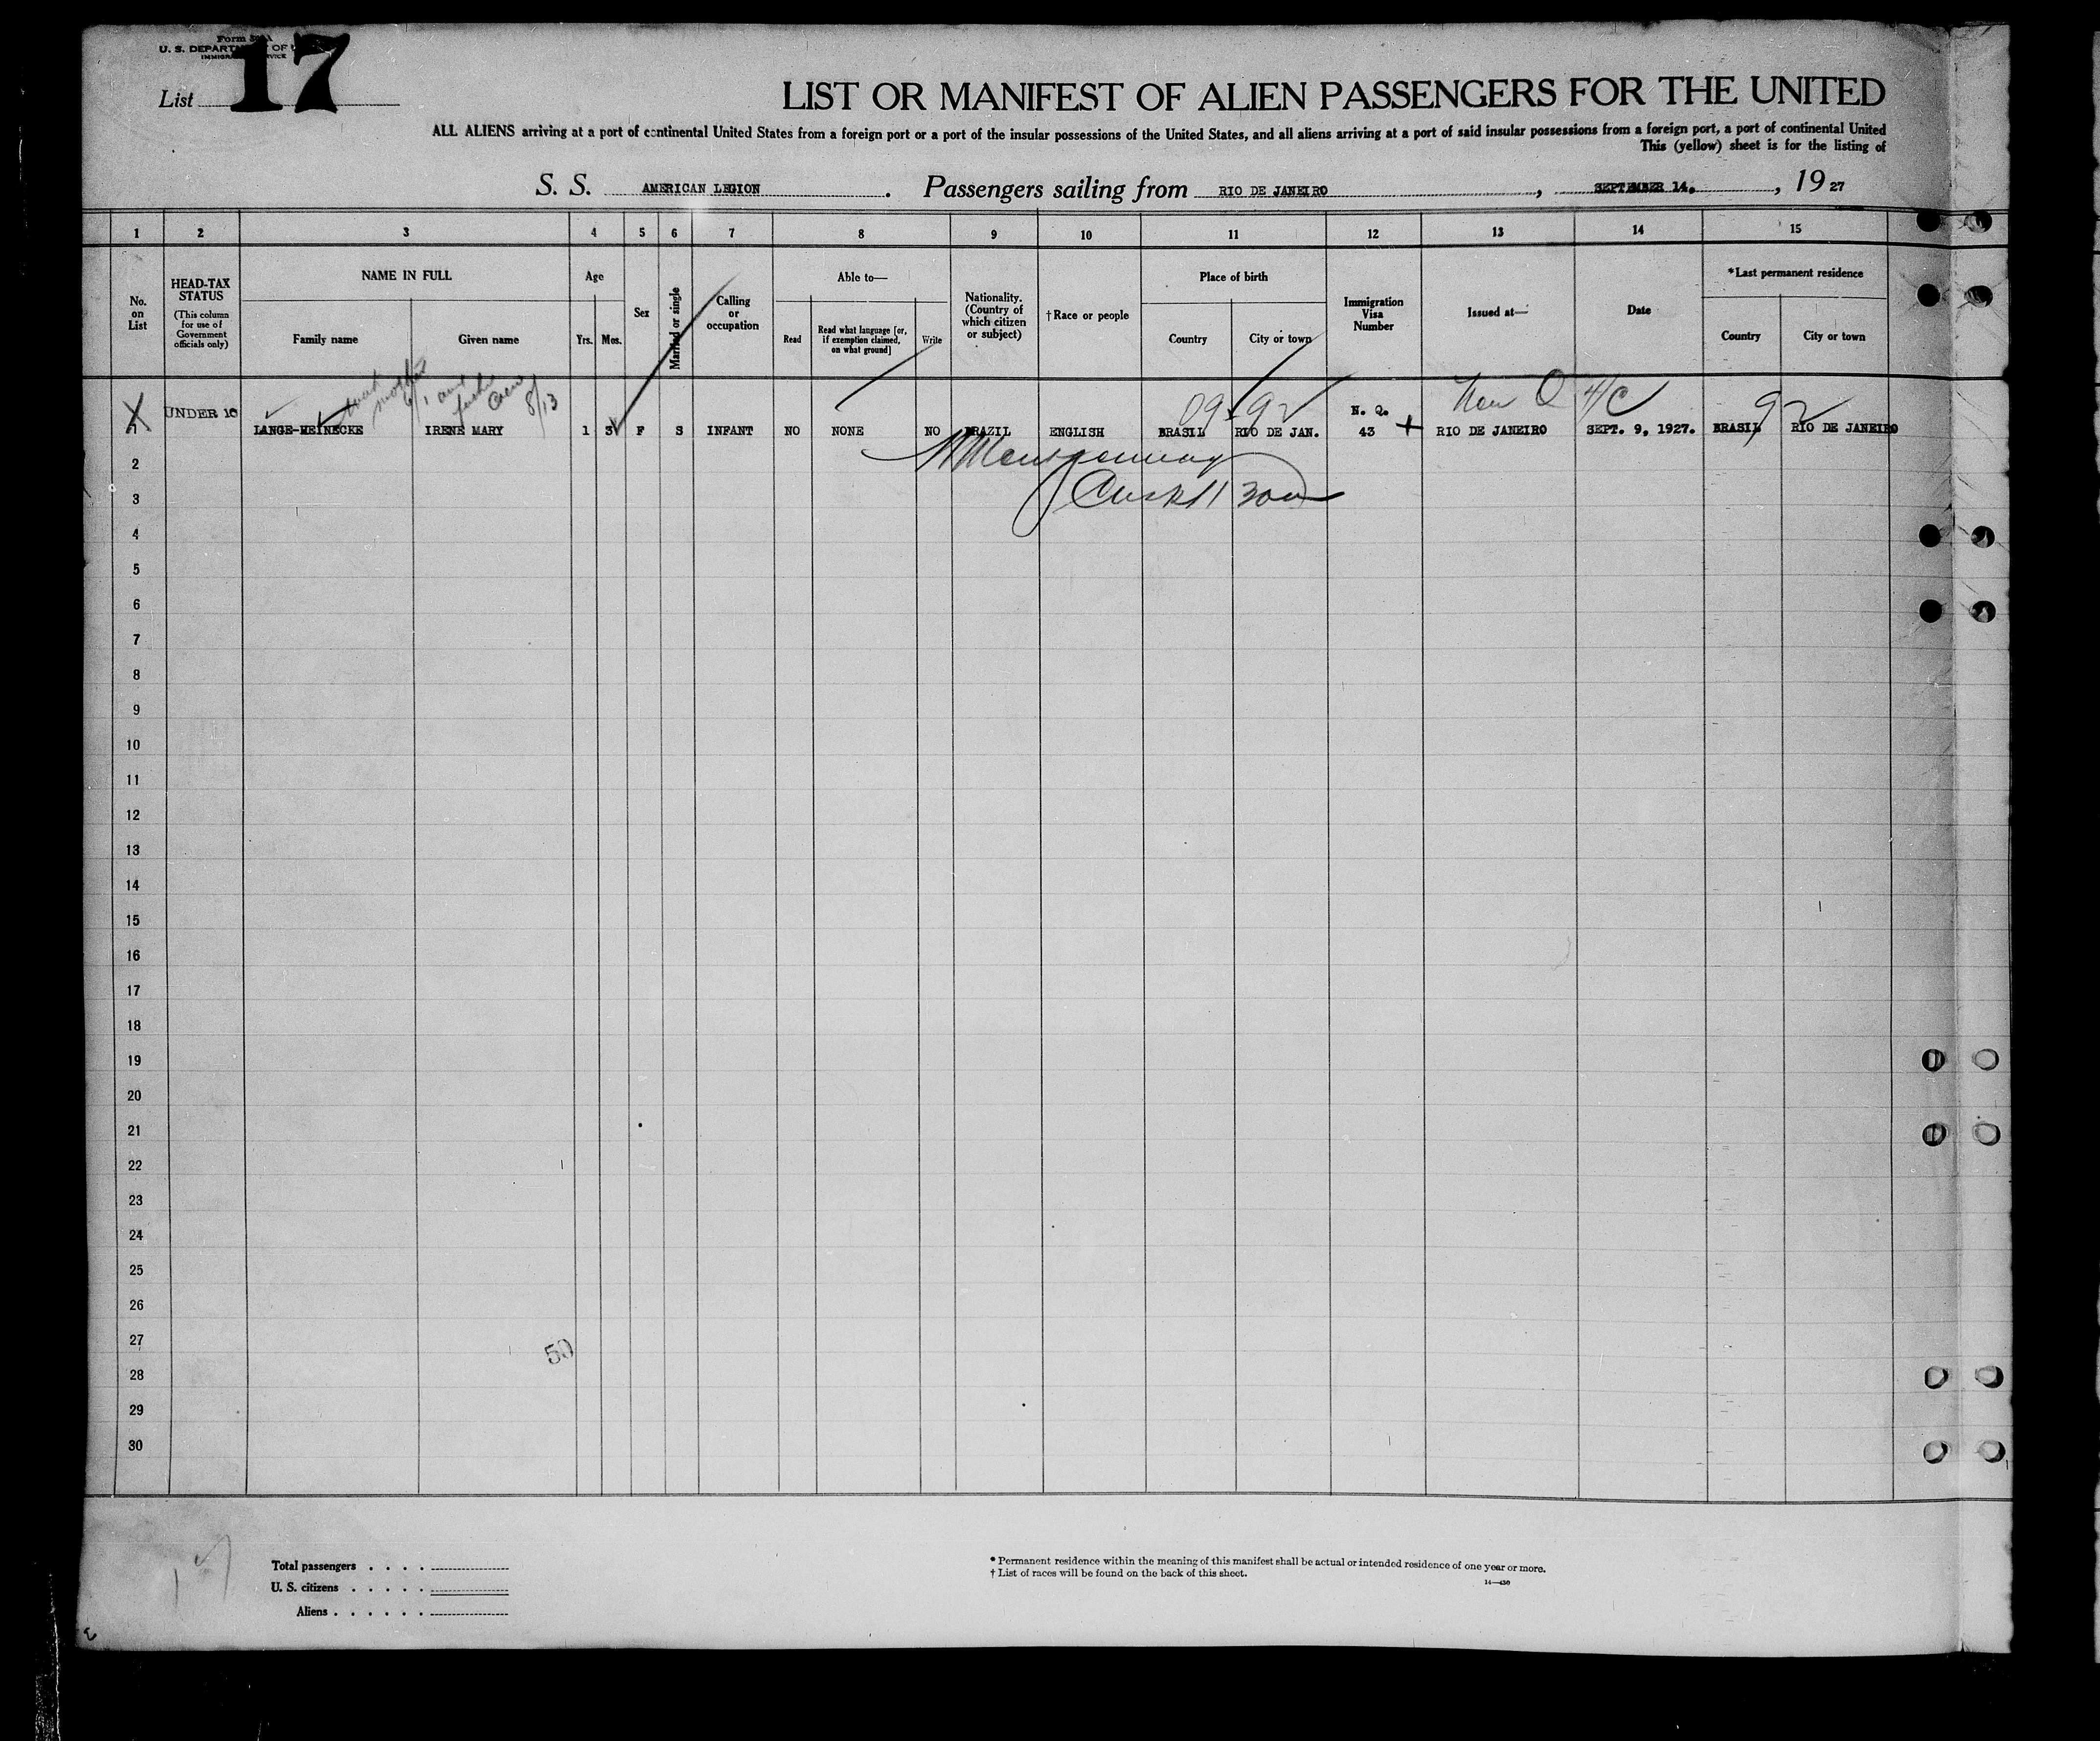 Form
U. S. DEPARTMENT OF
List 17
LIST OR MANIFEST OF ALIEN PASSENGERS FOR THE UNITED
ALL ALIENS arriving at a port of continental United States from a foreign port or a port of the insular possessions of the United States, and all aliens arriving at a port of said insular possessions from a foreign port, a port of continental United
This (yellow) sheet is for the listing of
S. S. AMERICAN LEGION. Passengers sailing from RIO DE JANEIRO, SEPTEMBER 14., 19 27
1 2 3 4 5 6 7 8 9 10 11 12 13 14 15
No. on List
HEAD-TAX STATUS (This column for use of Government officials only)
NAME IN FULL
Family name Given name
Age
Yrs. Mos.
Sex
Married or single
Calling or occupation
Able to—
Read Read what language [or, if exemption claimed, on what ground] Write
Nationality. (Country of which citizen or subject)
†Race or people
Place of birth
Country City or town
Immigration Visa Number
Issued at—
Date
*Last permanent residence
Country City or town
mother 6/1 and
8/13
09-92
Non Q 4/C
92
1 UNDER 16 LANGE-HEINECKE IRENE MARY 1 3 F S INFANT NO NONE NO BRAZIL ENGLISH BRASIL RIO DE JAN. N. Q. 43 RIO DE JANEIRO SEPT. 9, 1927. BRASIL RIO DE JANEIRO
Montgomery
2
3
4
5
6
7
8
9
10
11
12
13
14
15
16
17
18
19
20
21
22
23
24
25
26
27
50
28
29
30
17
Total passengers . . . .
U. S. citizens . . . . .
Aliens . . . . . .
* Permanent residence within the meaning of this manifest shall be actual or intended residence of one year or more.
† List of races will be found on the back of this sheet.
14—430